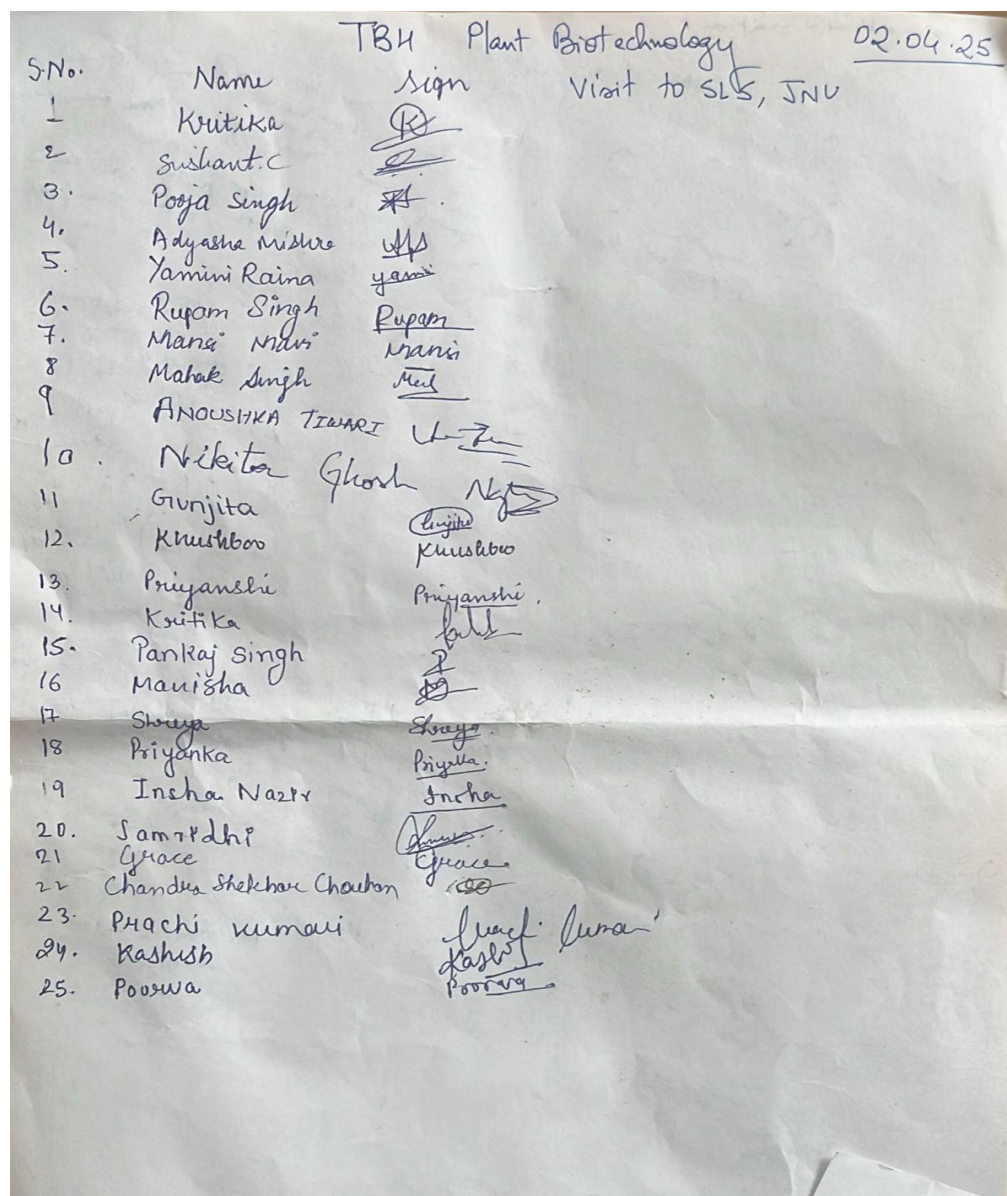 TBH Plant Biotechnology 02.04.25
S.No. Name Sign Visit to SLS, JNU
1 Kritika
2 Sushant.C
3. Pooja Singh
4. Adyasha Mishra
5. Yamini Raina yami
6. Rupam Singh Rupam
7. Mansi Mavi Mansi
8 Mahak Singh
9 ANOUSHKA TIWARI
10. Nikita Ghosh
11 Gunjita Gunjita
12. Khushboo Khushboo
13. Priyanshi Priyanshi.
14. Kritika
15. Pankaj Singh
16 Manisha
17 Shreya Shreya.
18 Priyanka Priyanka.
19 Insha Nazir Insha.
20. Samridhi
21 Grace Grace
22 Chandra Shekhar Chauhan
23. Prachi Kumari Prachi Kumari
24. Kashish Kashi
25. Poorwa Poorva